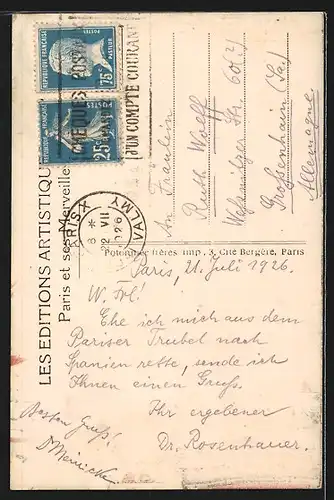 LES EDITIONS ARTISTIQUES
Paris et ses Merveilles
REPUBLIQUE FRANÇAISE
POSTES
75c
POSTES
25c
CHEQUES POSTAUX
D'UN COMPTE COURANT
PARIS X
VALMY
8 *
22 VII
1926
An Fräulein
Ruth
Str. 60
Grossenhain (Sa.)
Allemagne
frères imp., 3, Cité Bergère, Paris
Paris, 21. Juli 1926.
W. Frl!
Ehe ich mich aus dem
Pariser Trubel nach
Spanien rette, sende ich
Ihnen einen Gruß.
Ihr ergebener
Dr. Rosenhauer.
Besten Gruß!